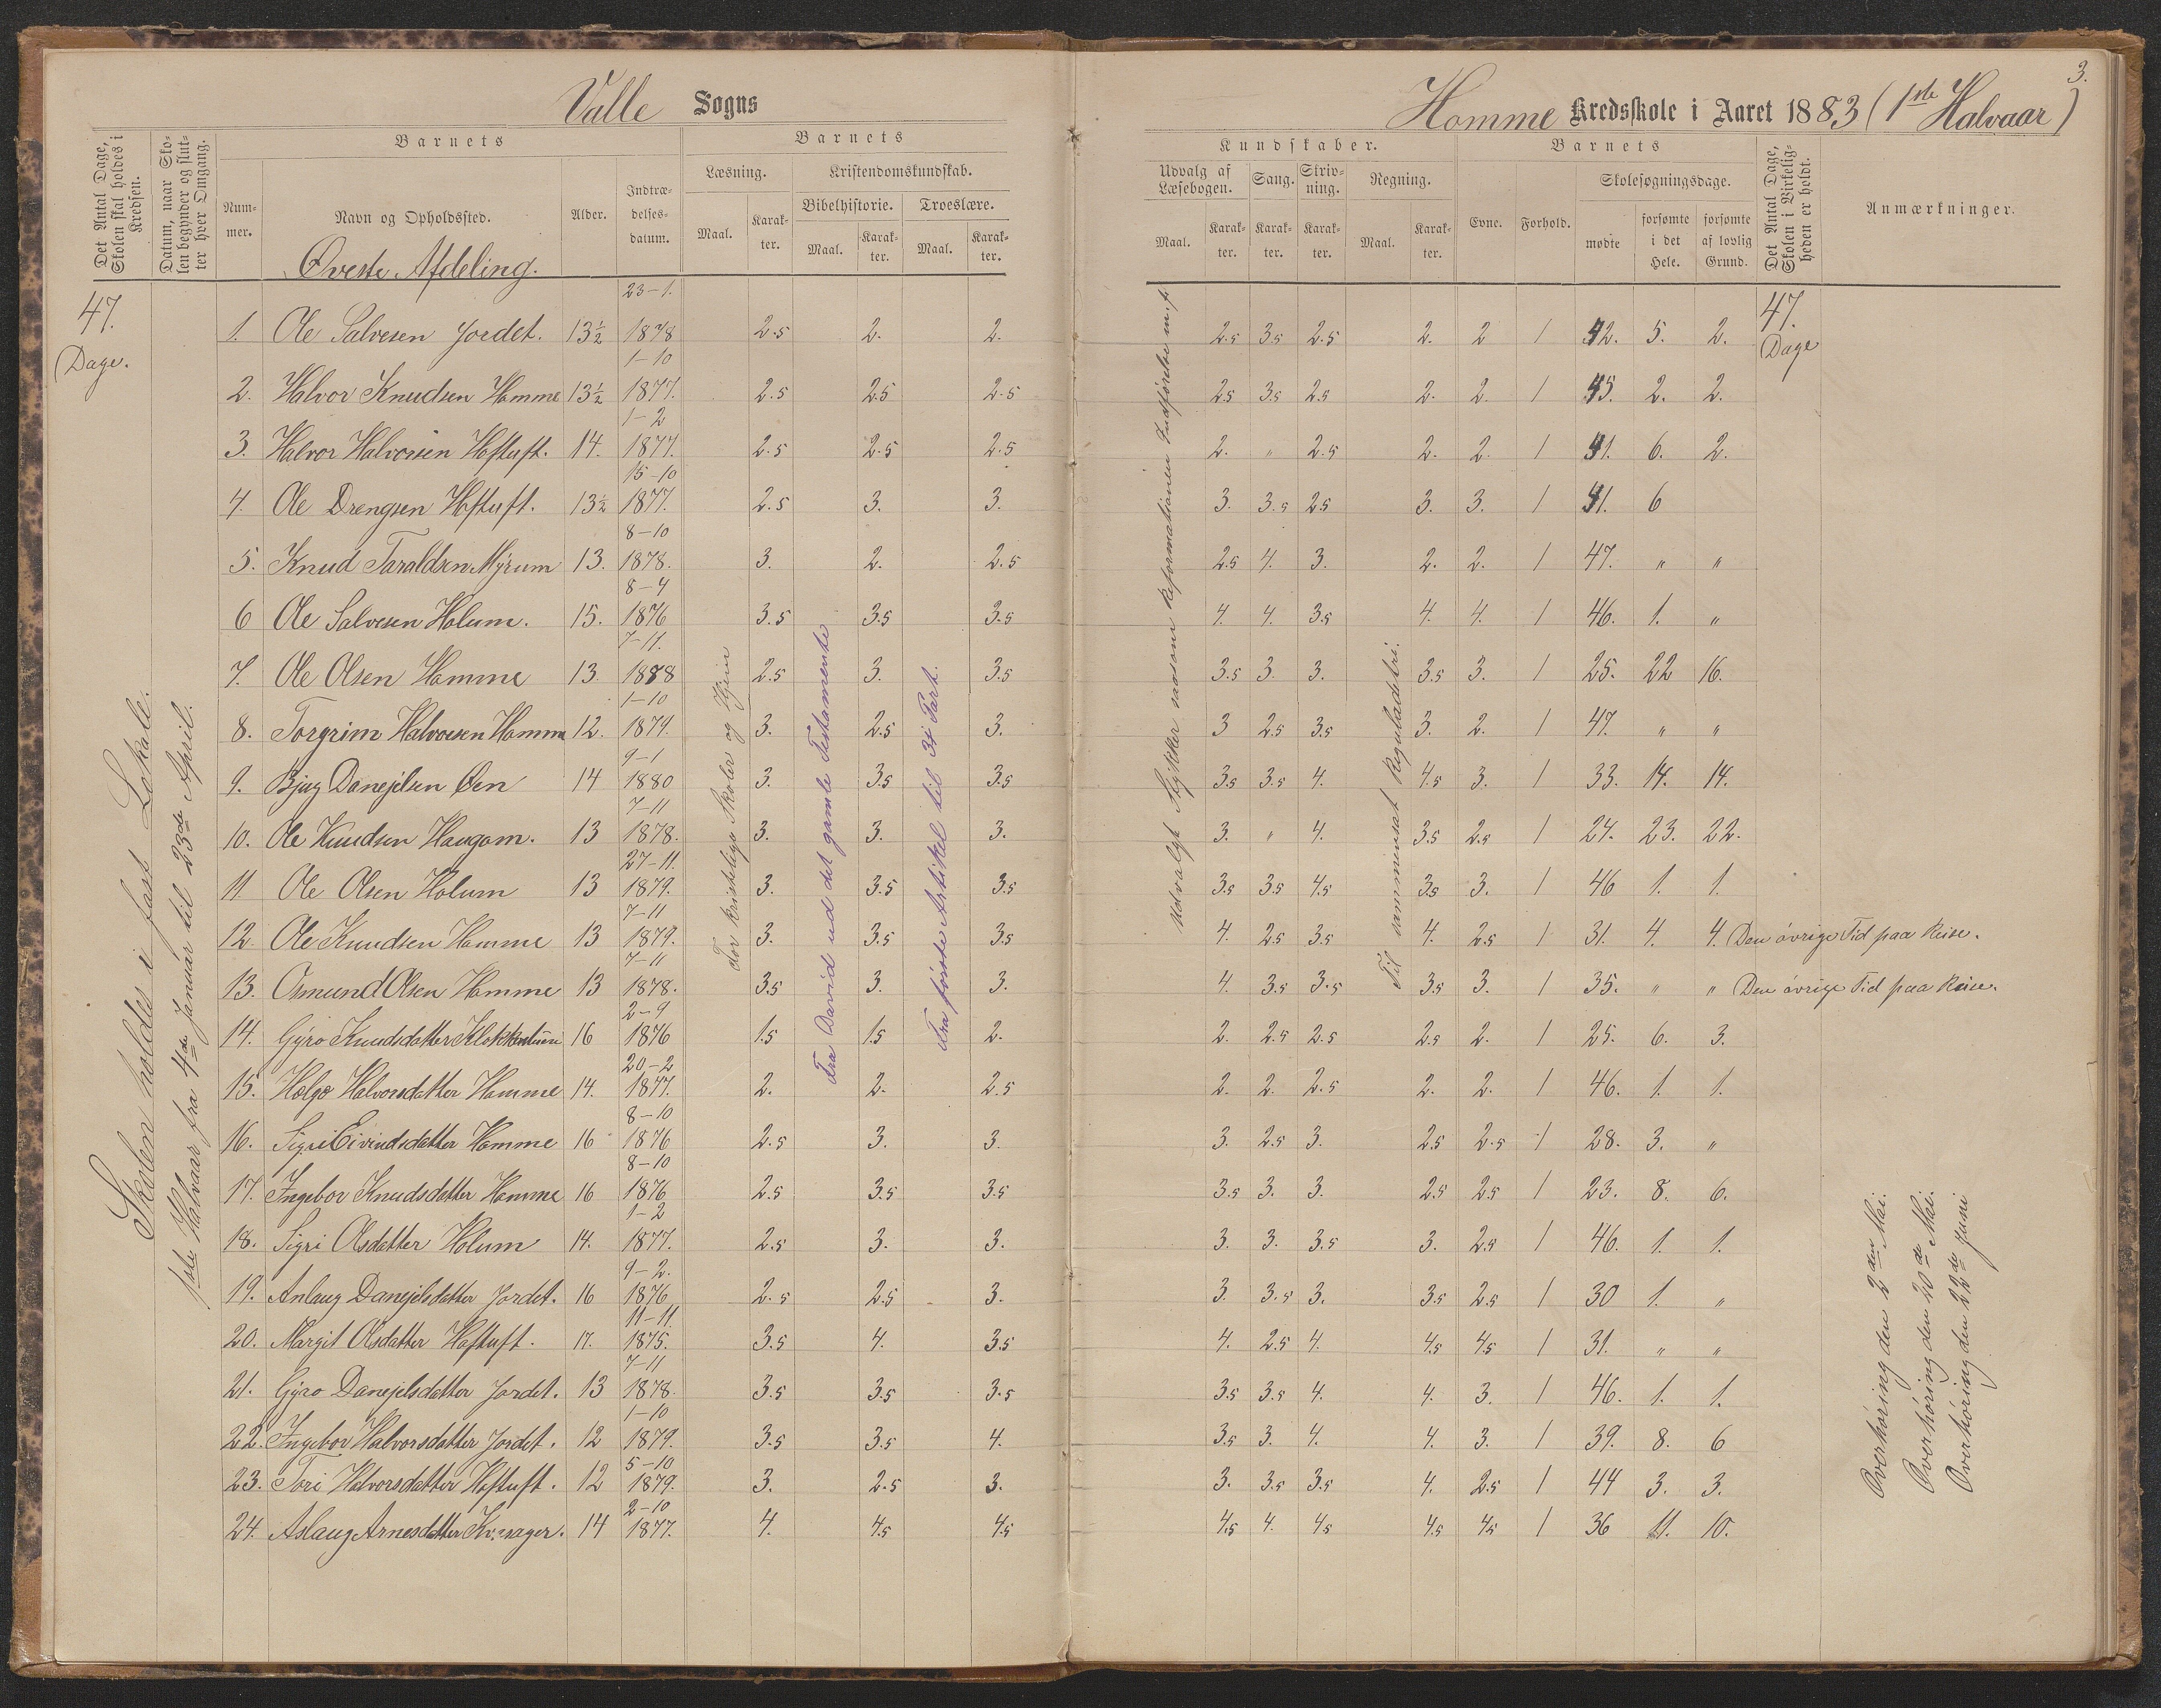 Valle Sogns
Homme Kredsskole i Aaret 1883 (1ste Halvaar)
3.
Det Antal Dage, Skolen skal holdes i Kredsen.
Datum, naar Skolen begynder og slutter hver Omgang.
Barnets
Nummer.
Navn og Opholdssted.
Alder.
Indtrædelsesdatum.
Barnets
Læsning.
Kristendomskundskab.
Bibelhistorie.
Troeslære.
Maal. Karakter. Maal. Karakter. Maal. Karakter.
Kundskaber.
Udvalg af Læsebogen.
Sang.
Skrivning.
Regning.
Maal. Karakter. Karakter. Karakter. Maal. Karakter.
Barnets
Evne. Forhold.
Skolesøgningsdage.
mødte
forsømte i det Hele.
forsømte af lovlig Grund.
Det Antal Dage, Skolen i Virkeligheden er holdt.
Anmærkninger.
Øverste Afdeling.
47. Dage.
47. Dage
Skolen holdes i fast Lokale.
1ste Halvaar fra 4de Januar til 23de April.
For kristelige Skoler og Hjem
Fra David ud det gamle Testamente
Fra förste Artikel til 3i Part.
Udvalgt Stykker saasom Reformationen Indförelse m.fl.
Til sammensat Reguladetri.
1. Ole Salvesen Jordet. 13½ 23-1. 1878 2.5 2. 2. 2.5 3.5 2.5 2. 2 1 42. 5. 2.
2. Halvor Knudsen Homme 13½ 1-10 1877. 2.5 2.5 2.5 2.5 3.5 2.5 2. 2. 1 45. 2. 2.
3. Halvor Halvorsen Hoftuft. 14. 1-2 1877. 2.5 2.5 2.5 2. " 2.5 2. 2. 1 41. 6. 2.
4. Ole Drengsen Hoftuft. 13½ 15-10 1877. 2.5 3. 3. 3. 3.5 2.5 3. 3. 1 41. 6
5. Knud Taraldsen Myrum 13. 8-10 1878. 3. 2. 2.5 2.5 4. 3. 2. 2. 1 47. " "
6 Ole Salvesen Holum. 15. 8-4 1876 3.5 3.5 3.5 4. 4. 3.5 4. 4. 1 46. 1. "
7. Ole Olsen Homme 13 7-11. 1878 2.5 3. 3.5 3.5 3. 3. 3.5 3. 1 25. 22 16.
8. Torgrim Halvorsen Homme 12. 1-10 1879. 3. 2.5 3. 3 2.5 3.5 3. 2. 1 47. " "
9. Bjug Danejelsen Øen 14 9-1 1880 3. 3.5 3.5 3.5 3.5 4. 4.5 3. 1 33. 14. 14.
10. Ole Knudsen Haugom. 13 7-11 1878. 3. 3. 3. 3. " 4. 3.5 2.5 1 24. 23. 22.
11 Ole Olsen Holum 13 27-11. 1879. 3. 3.5 3.5 3.5 3.5 4.5 3.5 3. 1 46 1. 1.
12. Ole Knudsen Homme 13 7-11 1879. 3. 3.5 3.5 4. 2.5 3.5 4. 2.5 1 31. 4. 4. Den övrige Tid paa Reise.
13. Osmund Olsen Homme 13 7-11 1878. 3.5 3. 3. 4. 3.5 3.5 3.5 3. 1 35. " " Den övrige Tid paa Reise.
14. Gyro Knudsdatter 16 2-9 1876 1.5 1.5 2. 2. 2.5 2.5 2.5 2. 1 25. 6. 3.
15. Helge Halvorsdatter Homme 14. 20-2 1877. 2. 2. 2.5 2. 2. 2.5 2. 2. 1 46. 1. 1.
16. Sigri Eivindsdatter Homme 16 8-10 1876 2.5 3. 3. 3. 2.5 3. 2.5 2.5 1 28. 3. "
17. Ingebor Knudsdatter Homme 16 8-10 1876 2.5 3.5 3.5 3.5 3. 3. 2.5 2.5 1 23. 8. 6.
18. Sigri Olsdatter Holum 14. 1-2 1877. 2.5 3. 3. 3. 3. 3.5 3. 2.5 1 46. 1. 1.
19. Anlaug Danejelsdatter Jordet. 16 9-2. 1876 2.5 2.5 3. 3. 3.5 3. 3.5 2.5 1 30 1. "
20. Margit Olsdatter Hoftuft. 17. 11-11. 1875. 3.5 4. 3.5 4. 2.5 4. 4.5 4.5 1 31. " "
21. Gyro Danejelsdatter Jordet. 13 7-11 1878. 3.5 3.5 3.5 3.5 3.5 4. 4. 3. 1 46. 1. 1.
22. Ingebor Halvorsdatter Jordet. 12 1-10 1879. 3.5 3.5 4. 3.5 3. 4. 4. 3. 1 39. 8. 6
23. Tori Halvorsdatter Hoftuft. 12 5-10 1879. 3. 2.5 3. 3. 3.5 3.5 4. 2.5 1 44 3. 3.
24. Aslaug Arnesdatter 14 2-10 1877. 4. 4.5 4.5 4.5 4. 4.5 4.5 4.5 1 36 11. 10.
Overhöring den 2den Mai.
Overhöring den 20de Mai.
Overhöring den 22de Juni